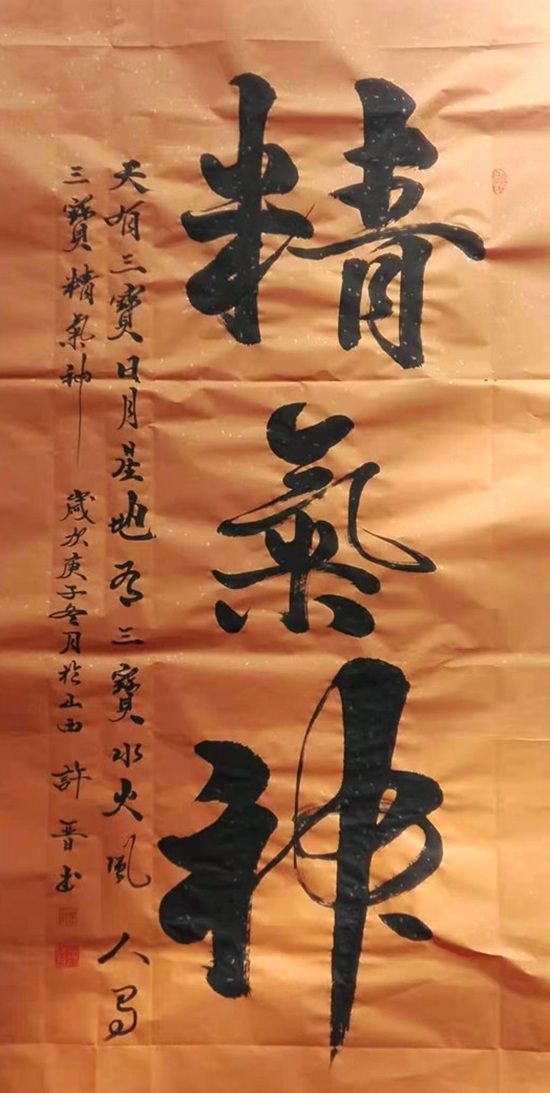 精氣神
天有三寶日月星地有三寶水火風人有
三寶精氣神 歲次庚子冬月於山西 許晋書